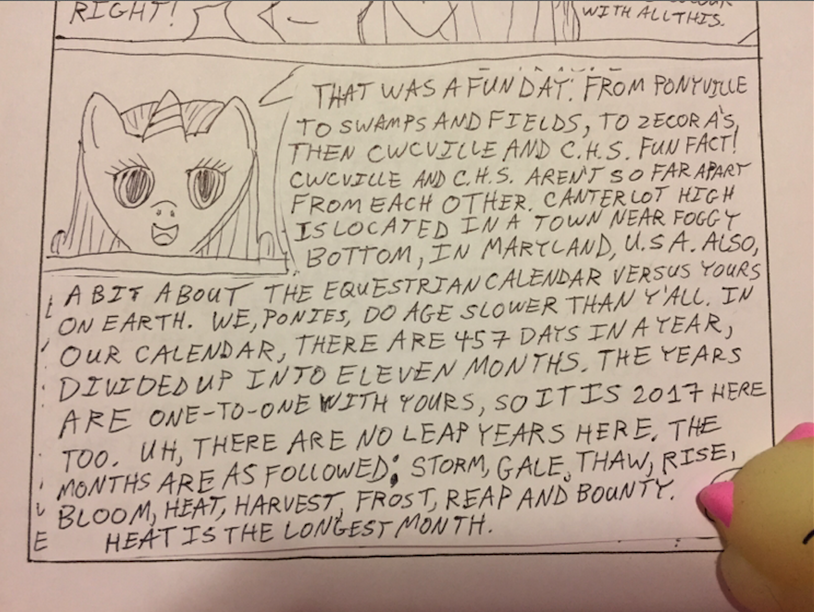 RIGHT!
WITH ALL THIS.
THAT WAS A FUN DAY. FROM PONYVILLE
TO SWAMPS AND FIELDS, TO ZECORA'S,
THEN CWCVILLE AND C.H.S. FUN FACT!
CWCVILLE AND C.H.S. AREN'T SO FAR APART
FROM EACH OTHER. CANTERLOT HIGH
IS LOCATED IN A TOWN NEAR FOGGY
BOTTOM, IN MARYLAND, U.S.A. ALSO,
A BIT ABOUT THE EQUESTRIAN CALENDAR VERSUS YOURS
ON EARTH. WE, PONIES, DO AGE SLOWER THAN Y'ALL. IN
OUR CALENDAR, THERE ARE 457 DAYS IN A YEAR,
DIVIDED UP INTO ELEVEN MONTHS. THE YEARS
ARE ONE-TO-ONE WITH YOURS, SO IT IS 2017 HERE
TOO. UH, THERE ARE NO LEAP YEARS HERE. THE
MONTHS ARE AS FOLLOWED: STORM, GALE, THAW, RISE,
BLOOM, HEAT, HARVEST, FROST, REAP AND BOUNTY.
HEAT IS THE LONGEST MONTH.